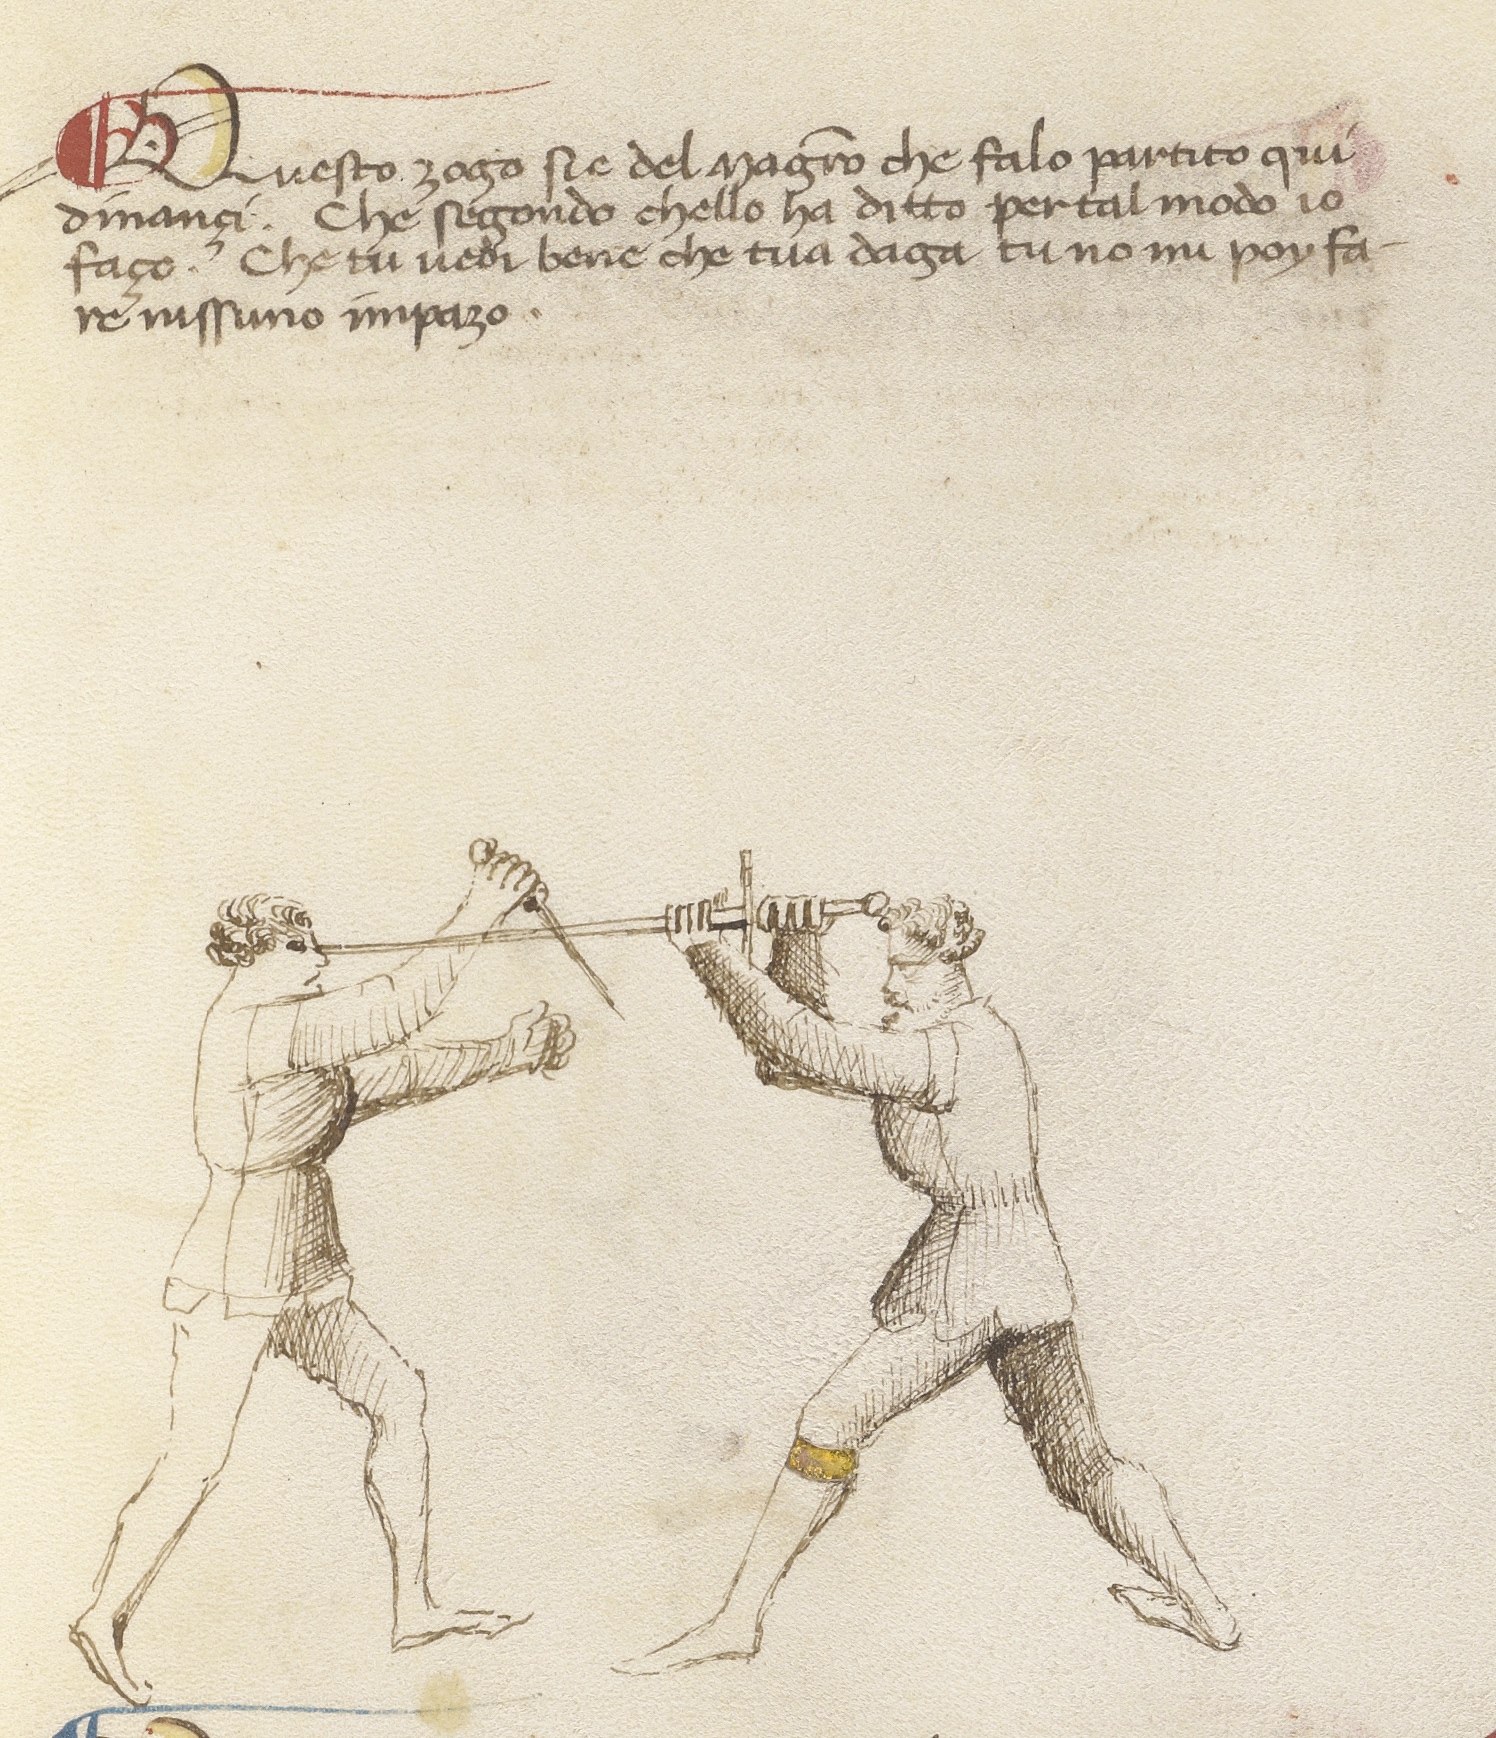 Questo zogo si e del Magro che fa lo partito qui
dinançi. Che segondo ch'ello ha ditto per tal modo io
faço. Che tu vedi bene che tua daga tu no mi poy fa-
re nissuno impazo.